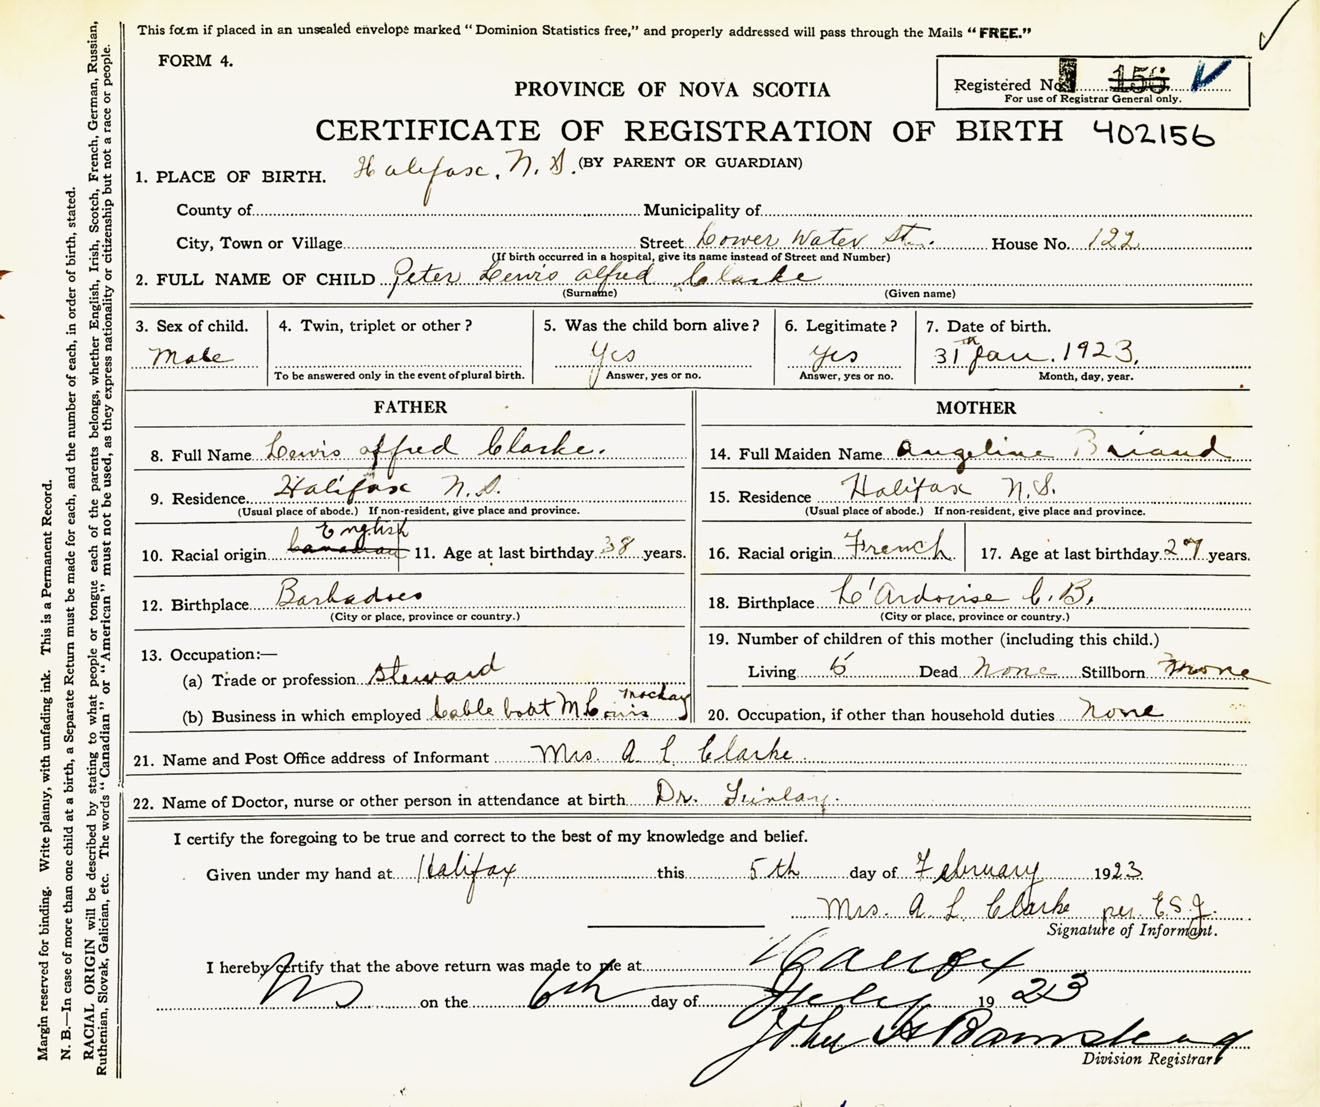 This form if placed in an unsealed envelope marked "Dominion Statistics free," and properly addressed will pass through the Mails "FREE."
FORM 4.
Registered No. 156
For use of Registrar General only.
PROVINCE OF NOVA SCOTIA
CERTIFICATE OF REGISTRATION OF BIRTH 402156
(BY PARENT OR GUARDIAN)
1. PLACE OF BIRTH. Halifax, N. S.
County of Municipality of
City, Town or Village Street Lower Water St. House No. 122
(If birth occurred in a hospital, give its name instead of Street and Number)
2. FULL NAME OF CHILD Peter Lewis alfred Clarke
(Surname) (Given name)
3. Sex of child. 4. Twin, triplet or other? 5. Was the child born alive? 6. Legitimate? 7. Date of birth.
Male Yes Yes 31 Jan. 1923.
To be answered only in the event of plural birth. Answer, yes or no. Answer, yes or no. Month, day, year.
FATHER
8. Full Name Lewis alfred Clarke.
9. Residence. Halifax N.S.
(Usual place of abode.) If non-resident, give place and province.
English
10. Racial origin Canadian 11. Age at last birthday 38 years.
12. Birthplace Barbados
(City or place, province or country.)
13. Occupation:—
(a) Trade or profession Steward
(b) Business in which employed Cable boat Mackay
MOTHER
14. Full Maiden Name Angeline Briand
15. Residence Halifax N.S.
(Usual place of abode.) If non-resident, give place and province.
16. Racial origin French 17. Age at last birthday 27 years.
18. Birthplace L'Ardoise C.B.
(City or place, province or country.)
19. Number of children of this mother (including this child.)
Living Dead None Stillborn None
20. Occupation, if other than household duties None
21. Name and Post Office address of Informant Mrs. A L Clarke
22. Name of Doctor, nurse or other person in attendance at birth Dr. Finlay.
I certify the foregoing to be true and correct to the best of my knowledge and belief.
Given under my hand at Halifax this 5th day of February 1923
Mrs. A L Clarke per E.S.J.
Signature of Informant.
I hereby certify that the above return was made to me at Halifax
NS on the 6th day of July 1923
John H Barnstead
Division Registrar
Margin reserved for binding. Write plainly, with unfading ink. This is a Permanent Record.
N. B.—In case of more than one child at a birth, a Separate Return must be made for each, and the number of each, in order of birth, stated.
RACIAL ORIGIN will be described by stating to what people or tongue each of the parents belongs, whether English, Irish, Scotch, French, German, Russian,
Ruthenian, Slovak, Galician, etc. The words "Canadian" or "American" must not be used, as they express nationality or citizenship but not a race or people.